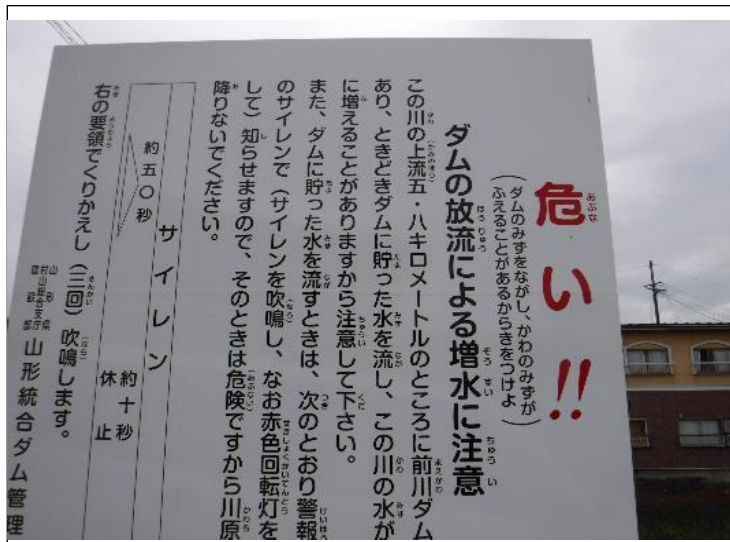 危い!!
(ダムのみずをながし、かわのみずが
ふえることがあるからきをつけよ)
ダムの放流による増水に注意
この川の上流五・八キロメートルのところに前川ダム
あり、ときどきダムに貯った水を流し、この川の水が
に増えることがありますから注意して下さい。
また、ダムに貯った水を流すときは、次のとおり警報
のサイレンで(サイレンを吹鳴し、なお赤色回転灯を
して)知らせますので、そのときは危険ですから川原
降りないでください。
サイレン
約五〇秒
約十秒
休止
右の要領でくりかえし(三回)吹鳴します。
山形県
村山総合支庁
建設部
山形統合ダム管理